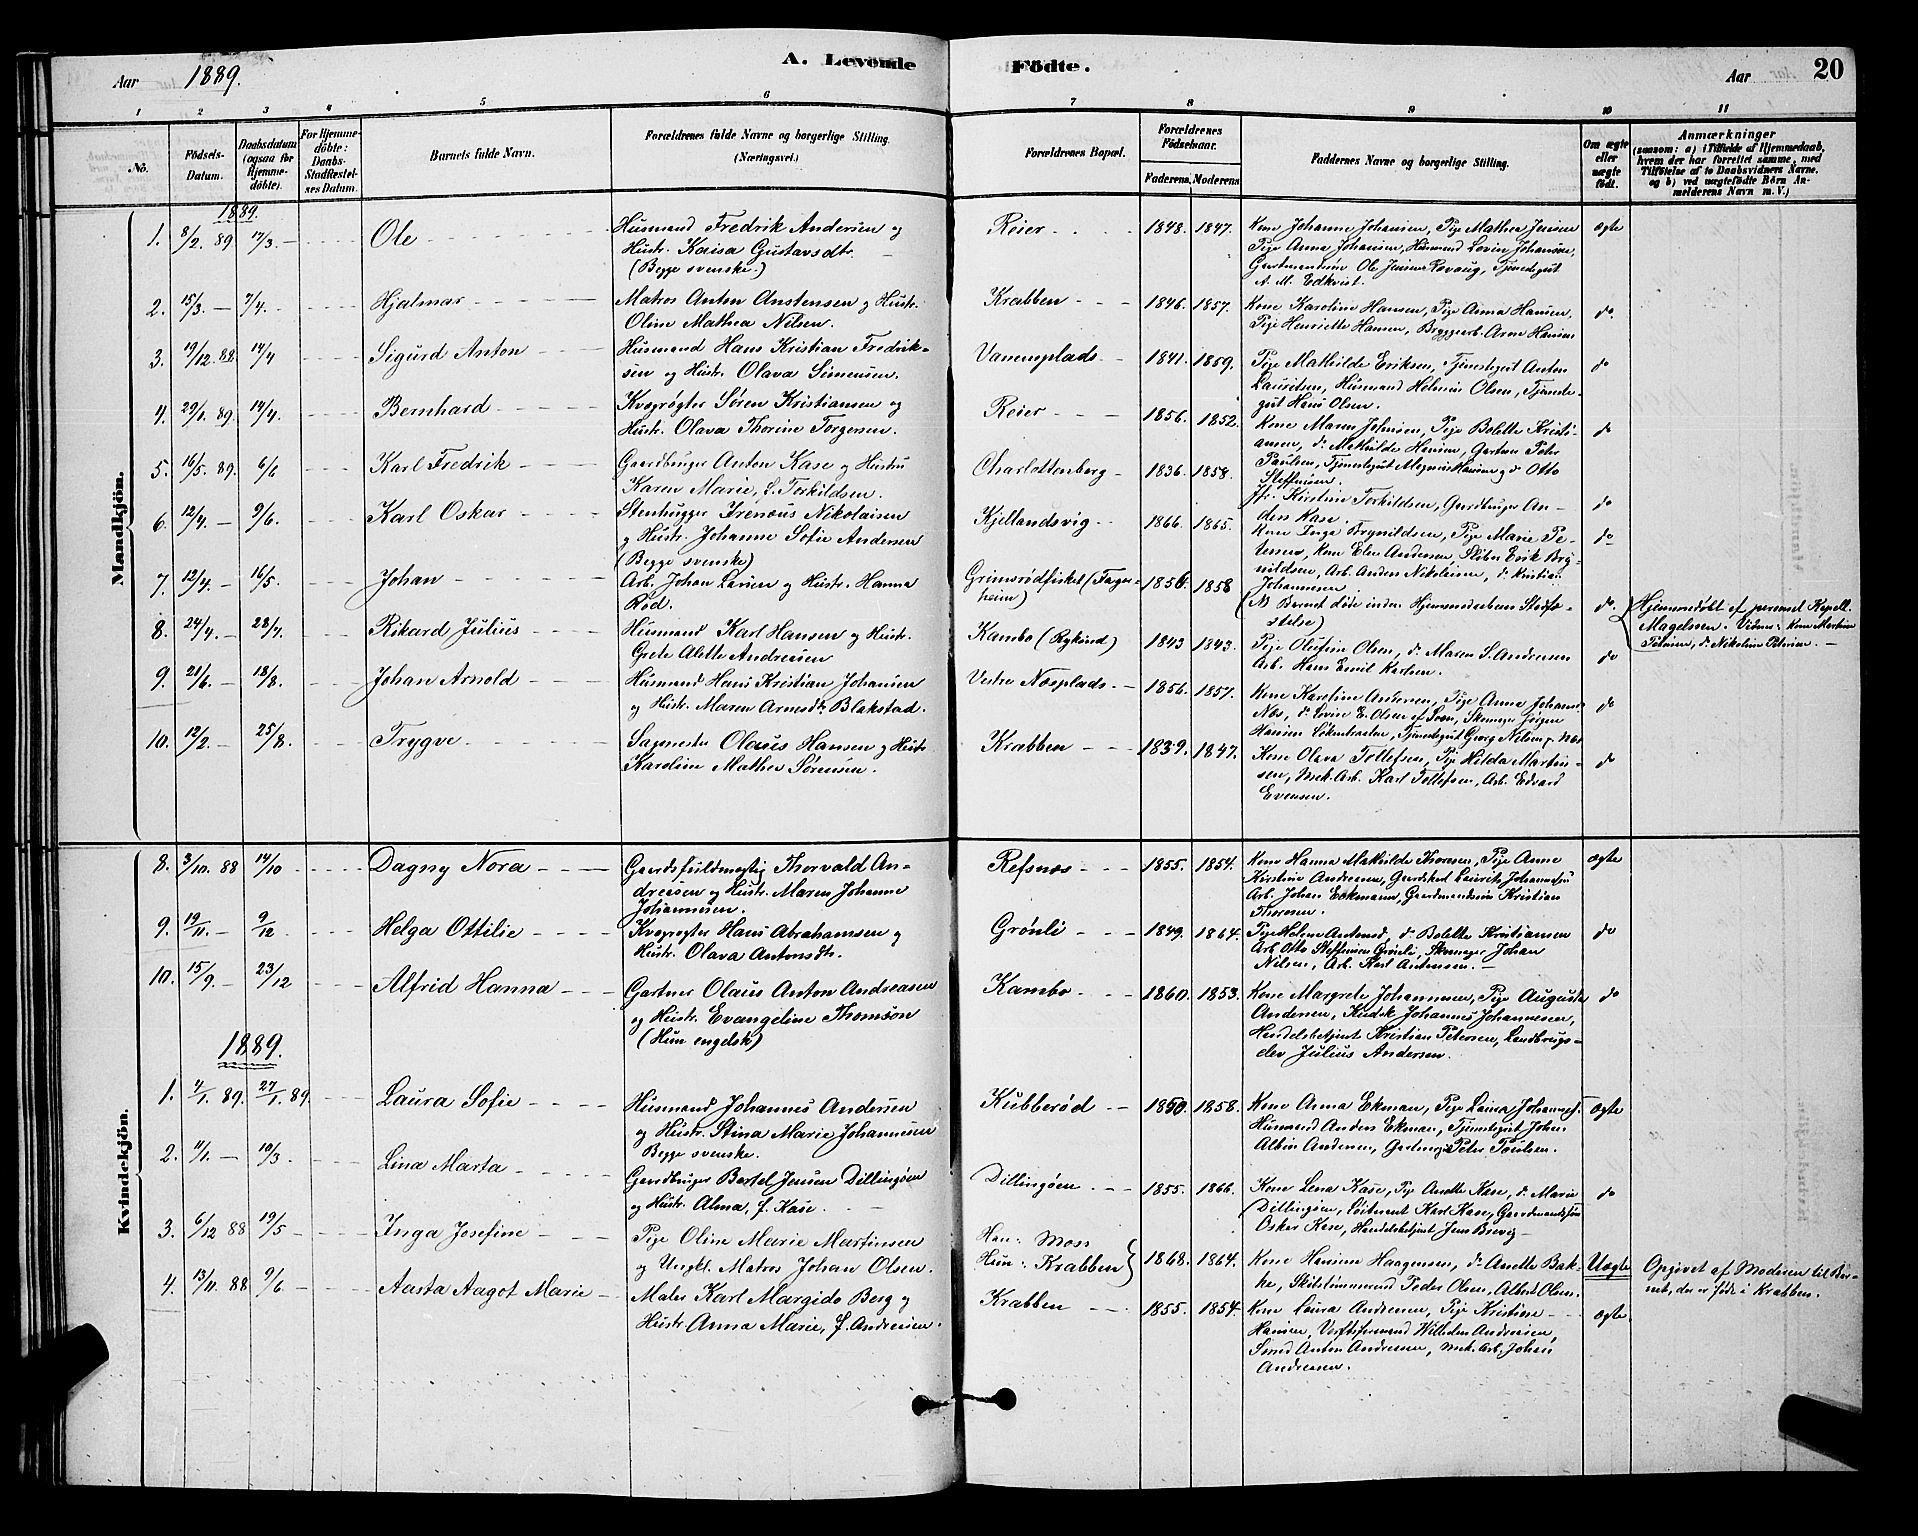 A. Levende Födte.
Aar 1889.
Aar 20
1 2 3 4 5 6 7 8 9 10 11
No.
Födsels-Datum.
Daabsdatum (ogsaa for Hjemmedöbte).
For Hjemmedöbte: Daabs-Stadfæstelses Datum.
Barnets fulde Navn.
Forældrenes fulde Navne og borgerlige Stilling. (Næringsvei.)
Forældrenes Bopæl.
Forældrenes Födselsaar.
Faderens. Moderens
Faddernes Navne og borgerlige Stilling.
Om ægte eller uægte født.
Anmærkninger
(saasom: a) i Tilfælde af Hjemmedaab, hvem der har forrettet samme, med Tilföielse af to Daabsvidners Navne, og b) ved uægtefödte Börn Anmelderens Navn m. V.)
Mandkjön.
1889.
1. 8/2. 89 17/3. Ole
Husmand Fredrik Andersen og
Hustr. Kaisa Gustavsdtr.
(Begge svenske.)
Reier 1848. 1847.
Kone Johanne Johansen, Pige Mathea Jensen
Pige Anna Johansen, Husmand Lovin Johansen,
Tjenestegut
A. M. Edkvist.
ægte
2. 15/3. 7/4. Hjalmar
Matros Anton Anstensen og Hustr.
Oline Mathea Nilsen.
Krabben 1846. 1857.
Kone Karoline Hansen, Pige Anna Hansen,
Pige Henriette Hansen, Bryggearb. Aron Hansen
do.
3. 19/12. 88 14/4 Sigurd Anton
Husmand Hans Kristian Fredrik-
sen og Hustr. Olava Simensen.
Vanemplads 1841. 1859.
Pige Mathilde Eriksen, Tjenestegut Anton
Lauritsen, Husmand Helmer Olsen, Tjeneste-
gut Hans Olsen.
do
4. 29/1. 89. 14/4. Bernhard
Kvægrøgter Søren Kristiansen og
Hustr. Olava Thorine Torgersen.
Reier 1856. 1852.
Kone Maren Johnsen, Pige Bolette Kristi-
ansen, do Mathilde Hansen, Gartner Peter
Paulsen, Tjenestegut Magnus Hansen og do Otto
Steffensen.
do
5. 16/5. 89. 6/6 Karl Fredrik
Gaardbruger Anton Kase og Hustru
Karen Marie, f. Torkildsen.
Charlottenberg 1836. 1858.
Fr. Kirstine Torkildsen, Gaardbruger An-
ders Kase.
do
6. 12/4. 9/6. Karl Oskar
Stenhugger Irenæus Nikolaisen
og Hustr. Johanne Sofie Andersen
(Begge svenske)
Kjellandsvig 1866. 1865.
Kone Inga Brynildsen, Pige Marie Pe-
tersen, Kone Elen Andersen, Sliber Erik Bry-
nildsen, Arb. Anders Nikolaisen, do Kristian
Johannesen.
do
7. 12/4. 16/5. Johan
Arb. Johan Larsen og Hustr. Hanna
Rød.
Grimsrødfisket (Fager-
heim) 1856. 1858
(NB Barnet døde inden Hjemmedaabens Stadfæ-
stelse)
do.
Hjemmedøbt af personel Kapell.
Magelssen. Vidner: Kone Martine
Petersen, do Nikoline Petersen.
8. 24/4. 28/7. Rikard Julius
Husmand Karl Hansen og Hustr.
Grete Alette Andreasen
Kambo (Rykind) 1843 1843.
Pige Olufine Olsen, do Maren S. Andersen
Arb. Hans Emil Karlsen.
do
9. 21/6. 18/8. Johan Arnold
Husmand Hans Kristian Johansen
og Hustr. Maren Arnesdtr. Blakstad.
Vestre Næsplads 1856. 1857.
Kone Karoline Andersen, Pige Anna Johanne
Næs, do Lovise E. Olsen af Soon, Skomager Jørgen
Hansen Tjenestegut Georg Nilsen p. Næs
do
10. 12/2. 25/8. Trygve
Sagmester Olaus Hansen og Hustr.
Karoline Mathea Sørensen.
Krabben 1839. 1847.
Kone Olava Tollefsen, Pige Hilda Martin-
sen, Mek. Arb. Karl Tollefsen, Arb. Edvard
Evensen.
do
Kvindekjön.
8. 3/10. 88 14/10 Dagny Nora
Gaardsfuldmægtig Thorvald An-
dreasen og Hustr. Maren Johanne
Johannesen.
Refsnæs 1855. 1854.
Kone Hanna Mathilde Thoresen, Pige Anne
Kirstine Andersen, Gaardskarl Laurits Johannesen
Arb. Johan Eckmann, Gaardmandssøn Kristian
Thoresen.
ægte
9. 19/11. 9/12 Helga Ottilie
Kvægrøgter Hans Abrahamsen og
Hustr. Olava Antonsdtr.
Grønli 1849. 1864.
Pige Helene Antonsd, do Bolette Kristiansen
Arb. Otto Steffensen Grønli, Skomager Johan
Nilsen, Arb. Karl Antensen.
do
10. 15/9. 23/12 Alfrid Hanna
Gartner Olaus Anton Andreasen
og Hustr. Evangeline Thomson
(Hun engelsk)
Kambo 1860. 1853.
Kone Margrete Johannesen, Pige Augusta
Andersen, Kudsk Johannes Johannesen,
Handelsbetjent Kristian Petersen, Landbrugs-
elev Julius Andersen.
do
1889.
1. 4/1. 89. 27/1. 89. Laura Sofie
Husmand Johannes Andersen
og Hustr. Stina Marie Johannesen
Begge svenske.
Kubberød 1850. 1858.
Kone Anna Ekman, Pige Laura Johannes.
Husmand Anders Ekman, Tjenestegut Johan
Albin Andersen, Peter Poulsen.
ægte
2. 11/1. 10/3. Lina Marta
Gaardbruger Bertel Jensen Dillingøen
og Hustr. Alma, f. Kase.
Dillingøen 1855. 1866.
Kone Lena Kase, Pige Anette Kase, do Marie
Dillingøen, Løitnant Karl Kase, Gaardmandssøn
Oskar Kase, Handelsbetjent Jens Brevig
do
3. 6/12 88 19/5 Inga Josefine
Pige Oline Marie Martinsen
og Ungkl. Matros Johan Olsen.
Han: Moss
Hun: Krabben 1868. 1864.
Kone Hansine Haagensen, do Anette Bak-
ke, Skibstømmermand Peder Olsen, Albert Olsen.
Uægte
Opgivet af Moderen til Bar-
net, der er født i Krabben.
4. 13/11. 88 9/6. Aasta Aagot Marie
Maler Karl Margido Berg og
Hustr. Anna Marie, f. Andresen.
Krabben 1855. 1854.
Kone Laura Andresen, Pige Kristine
Hansen, Verftsformand Wilhelm Andresen,
Smed Anton Andresen, Mek. Arb. Johan
Andresen.
ægte